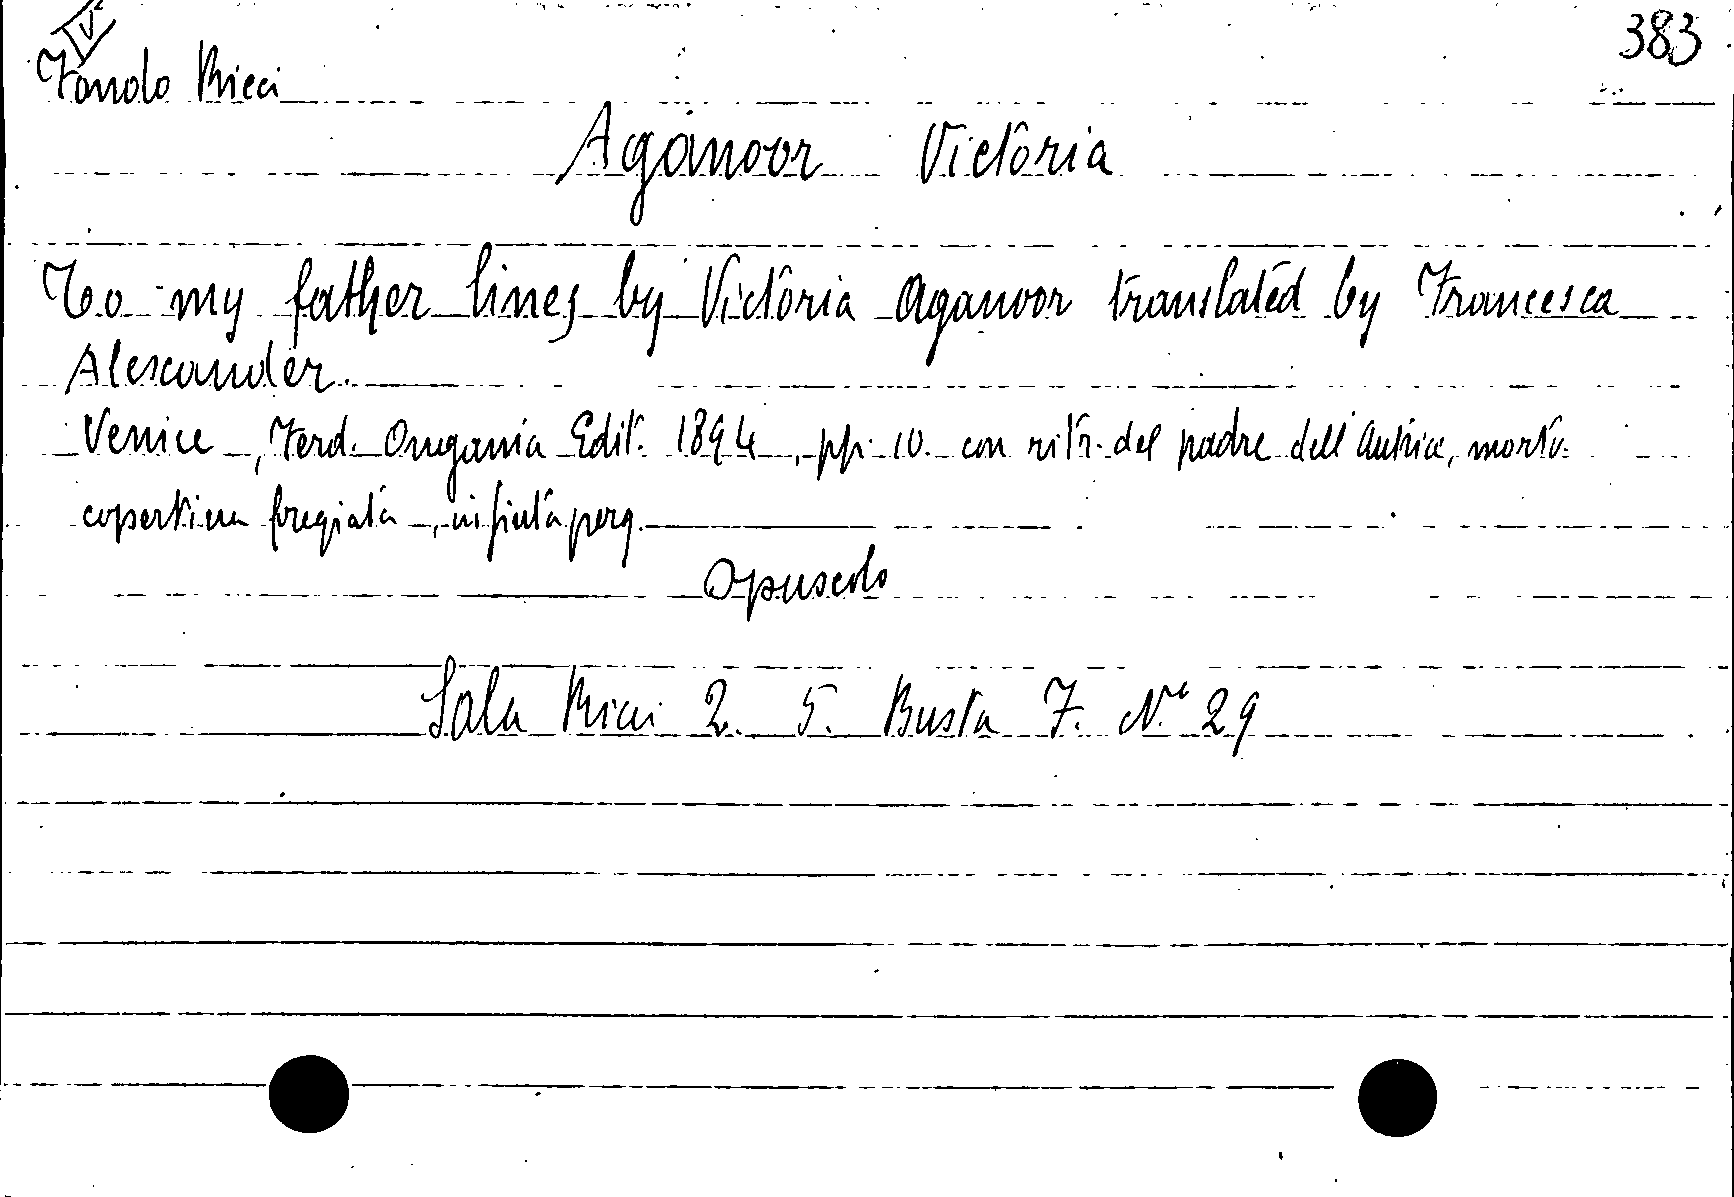 383
Fondo Ricci
Aganoor Victoria
To my father lines by Victoria Aganoor translated by Francesca
Alexander.
Venice, Ferd. Ongania Edit. 1894, pp. 10. con ritr. del padre dell'Autrice, morto.
copertina fregiata, in finta perg.
Opuscolo
Sala Ricci 2. 5. Busta 7. N° 29